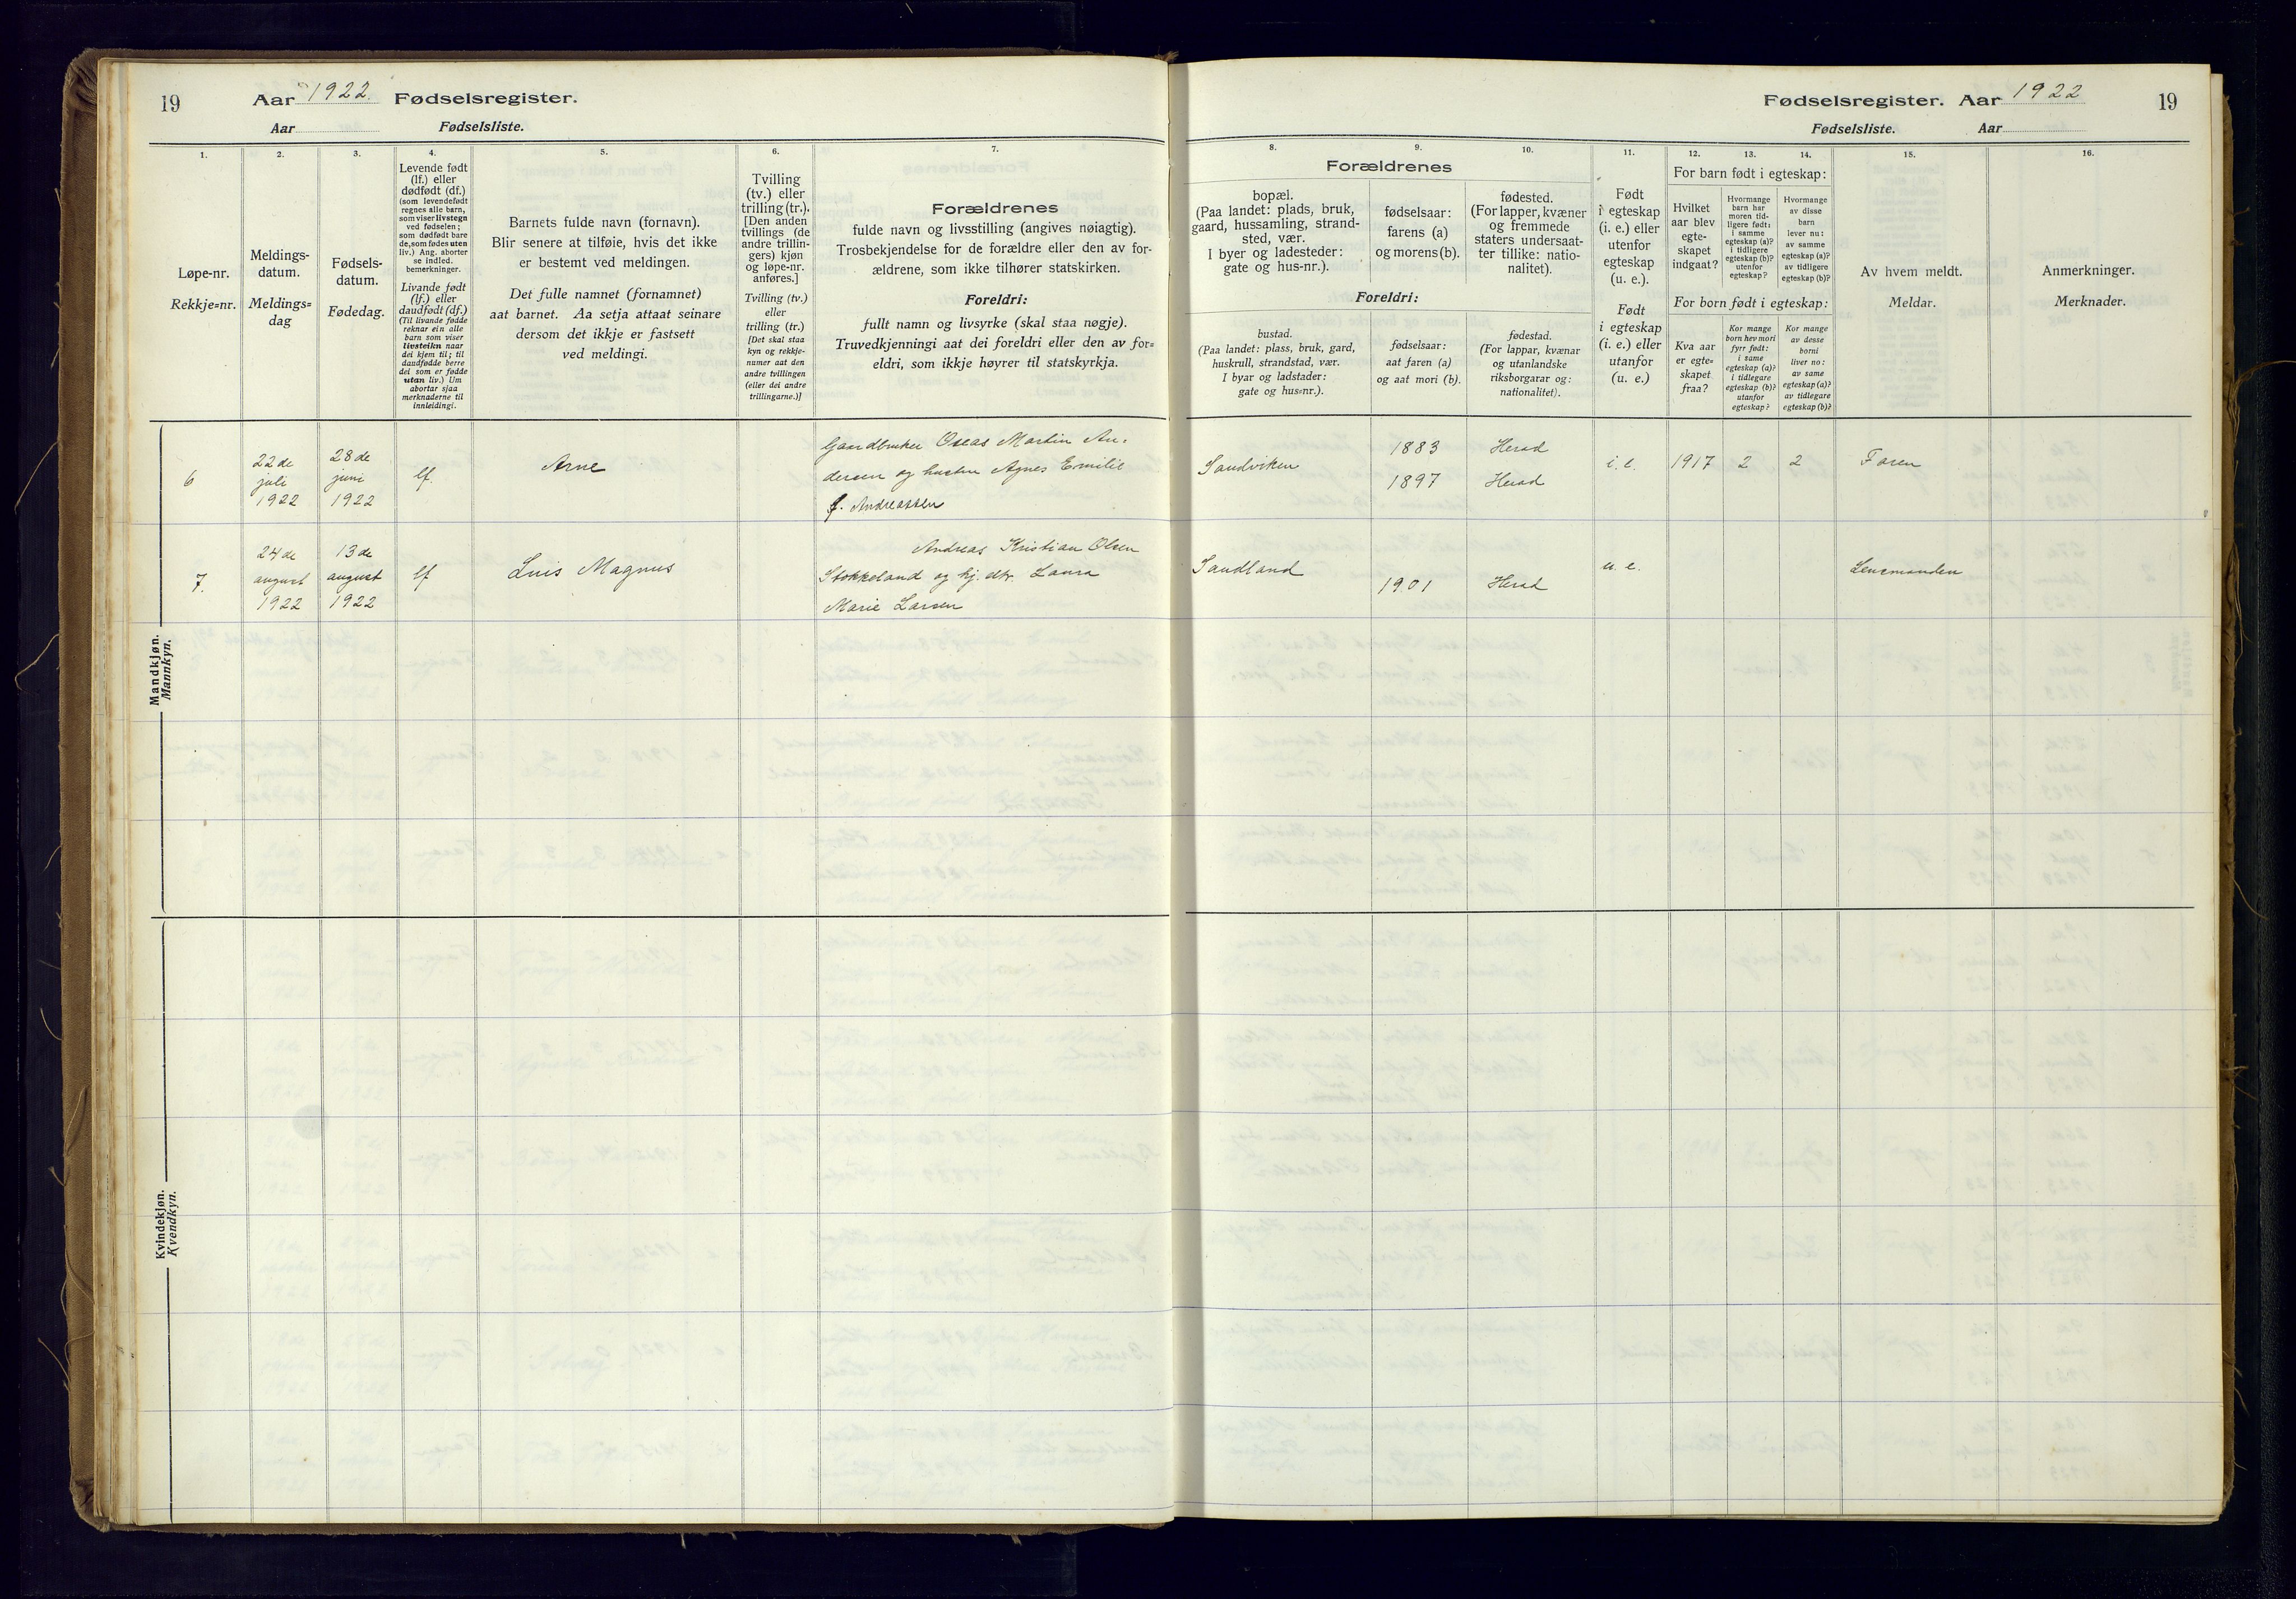 19
Aar 1922. Fødselsregister.
Aar Fødselsliste.
1.
2.
3.
4.
5.
6.
7.
Løpe-nr.
Rekkje=nr.
Meldings-
datum.
Meldings=
dag
Fødsels-
datum.
Fødedag.
Levende født
(lf.) eller
dødfødt (df.)
(som levendefødt
regnes alle barn,
som viser livstegn
ved fødselen;
som dødfødt bare
de, som fødes uten
liv.) Ang. aborter
se indled.
bemerkninger.
Livande født
(lf.) eller
daudfødt (df.)
(Til livande fødde
reknar ein alle
barn som viser
livsteikn naar
dei kjem til; til
daudfødde berre
dei som er fødde
utan liv.) Um
abortar sjaa
merknaderne til
innleidingi.
Barnets fulde navn (fornavn).
Blir senere at tilføie, hvis det ikke
er bestemt ved meldingen.
Det fulle namnet (fornamnet)
aat barnet. Aa setja attaat seinare
dersom det ikkje er fastsett
ved meldingi.
Tvilling
(tv.) eller
trilling (tr.).
[Den anden
tvillings (de
andre trillin-
gers) kjøn
og løpe-nr.
anføres.]
Tvilling (tv.)
eller
trilling (tr.)
[Det skal staa
kyn og rekkje-
numer aat den
andre tvillingen
(eller dei andre
trillingarne.)]
Forældrenes
fulde navn og livsstilling (angives nøiagtig).
Trosbekjendelse for de forældre eller den av for-
ældrene, som ikke tilhører statskirken.
Foreldri:
fullt namn og livsyrke (skal staa nøgje).
Truvedkjenningi aat dei foreldri eller den av for=
eldri, som ikkje høyrer til statskyrkja.
Mandkjøn.
Mannkyn.
6
22 de
juli
1922
28 de
juni
1922
lf.
Arne
Gaardbruker Oseas Martin An-
dersen og hustru Agnes Emilie
f. Andreassen
7.
24 de
august
1922
13 de
august
1922
lf
Luis Magnus
Andreas Kristian Olsen
Stokkeland og pj. dtr. Laura
Marie Larsen
Kvindekjøn.
Kvendkyn.
Fødselsregister. Aar 1922
19
Fødselsliste. Aar
8.
9.
10.
11.
12.
13.
14.
15.
16.
Forældrenes
bopæl.
(Paa landet: plads, bruk,
gaard, hussamling, strand-
sted, vær.
I byer og ladesteder:
gate og hus-nr.).
fødselsaar:
farens (a)
og morens (b).
fødested.
(For lapper, kvæner
og fremmede
staters undersaat-
ter tillike: natio-
nalitet).
Foreldri:
bustad.
(Paa landet: plass, bruk, gard,
huskrull, strandstad, vær.
I byar og ladstader:
gate og hus=nr.).
fødselsaar:
aat faren (a)
og aat mori (b).
fødestad.
(For lappar, kvænar
og utanlandske
riksborgarar og:
nationalitet).
Født
i egteskap
(i. e.) eller
utenfor
egteskap
(u. e.).
Født
i egteskap
(i. e.) eller
utanfor
(u. e.)
For barn født i egteskap:
Hvilket
aar blev
egte-
skapet
indgaat?
Hvormange
barn har
moren tid-
ligere født:
i samme
egteskap (a)?
i tidligere
egteskap (b)?
utenfor
egteskap?
Hvormange
av disse
barn
lever nu:
av samme
egteskap (a)?
av tidligere
egteskap (b)?
For born født i egteskap:
Kva aar
er egte=
skapet
fraa?
Kor mange
born hev mori
fyrr født:
i same
egteskap (a)?
i tidlegare
egteskap (b)?
utanfor
egteskap?
Kor mange
av desse
borni
liver no:
av same
egteskap (a)?
av tidlegare
egteskap (b)?
Av hvem meldt.
Meldar.
Anmerkninger.
Merknader.
Sandviken
1883
1897
Herad
Herad
i. e.
1917
2
2
Faren
Sandland
1901
Herad
u. e.
Lensmanden